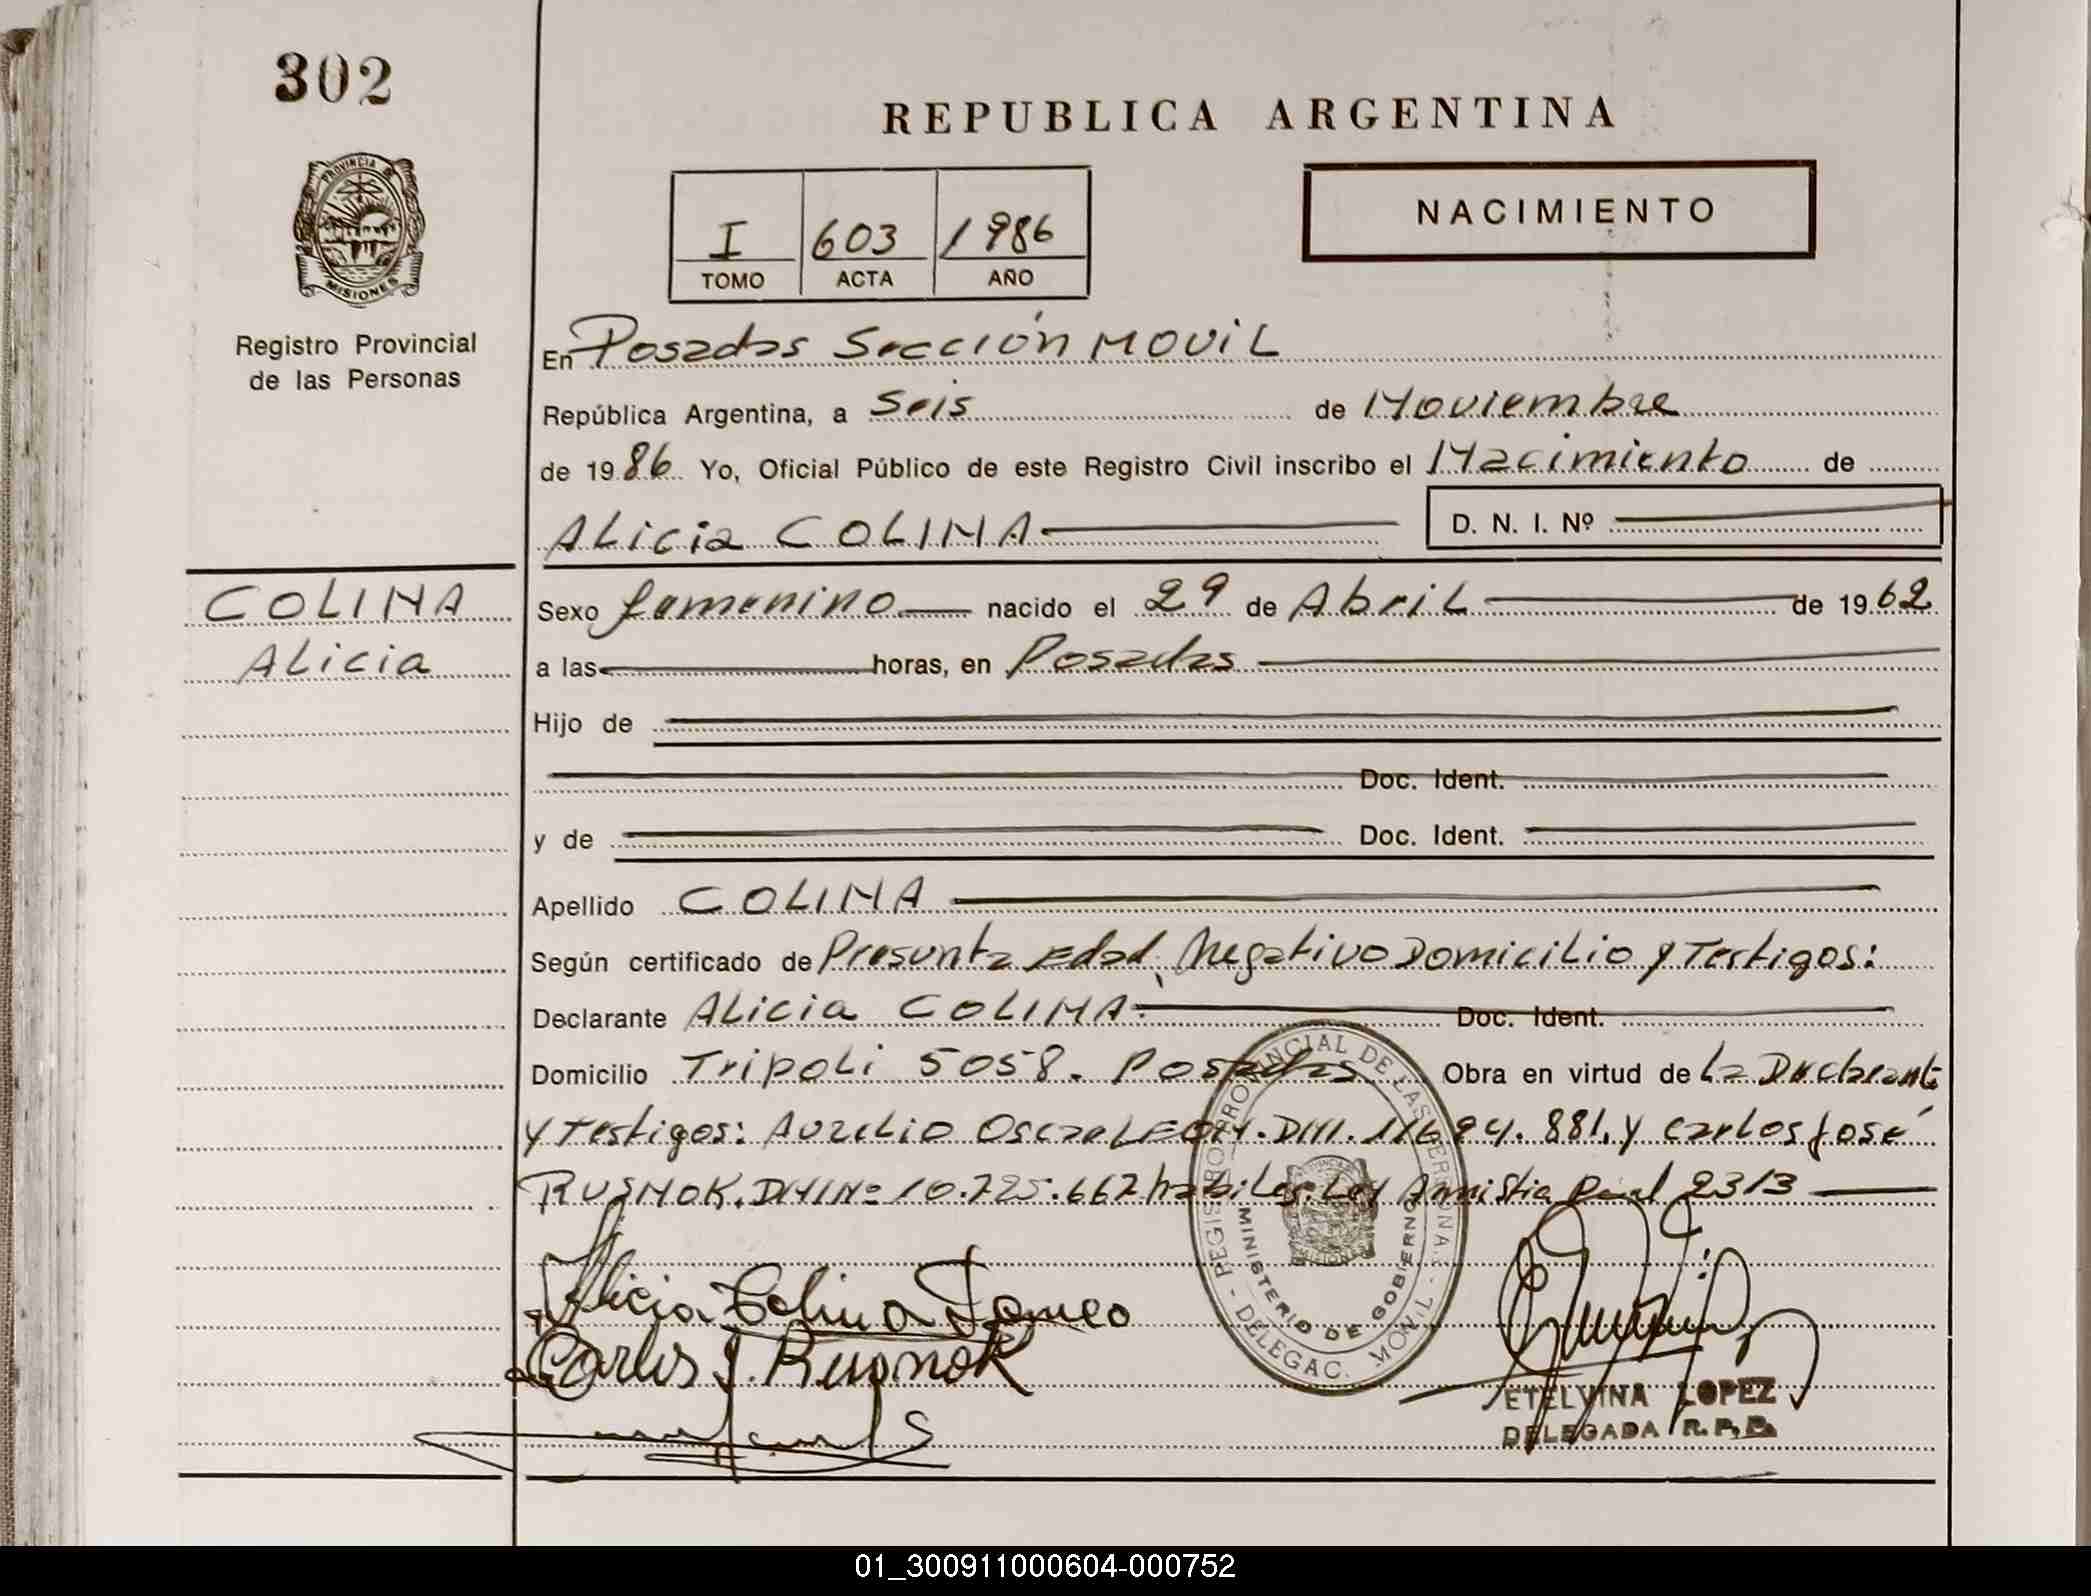 302
REPUBLICA ARGENTINA
PROVINCIA DE
MISIONES
I 603 1986
TOMO ACTA AÑO
NACIMIENTO
Registro Provincial
de las Personas
En Posadas Sección MOVIL
República Argentina, a Seis de Noviembre
de 1986 Yo, Oficial Público de este Registro Civil inscribo el Nacimiento de
Alicia COLINA D. N. I. Nº
COLINA
Alicia
Sexo femenino nacido el 29 de Abril de 1962
a las horas, en Posadas
Hijo de
Doc. Ident.
y de Doc. Ident.
Apellido COLINA
Según certificado de Presunta Edad, Negativo Domicilio y Testigos:
Declarante Alicia COLINA. Doc. Ident.
Domicilio Tripoli 5058. Posadas Obra en virtud de La Declarante
y Testigos: Aurelio Oscar LEON. DNI. 11694.881, y Carlos José
RUSNOK. DNI Nº 10.725.667 habiles. Ley Amnistia 2313
REGISTRO PROVINCIAL DE LAS PERSONAS - DELEGAC. MOVIL -
MINISTERIO DE GOBIERNO
Alicia Colina
Carlos J. Rusnok
ETELVINA LOPEZ
DELEGADA R. P. P.
01_300911000604-000752